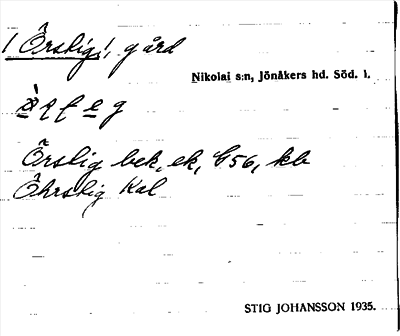 ! Örslig!, gård
Nikolai s:n, Jönåkers hd. Söd. l.
Örslig bek, ek, G56, kb
Öhrslig Kal
STIG JOHANSSON 1935.